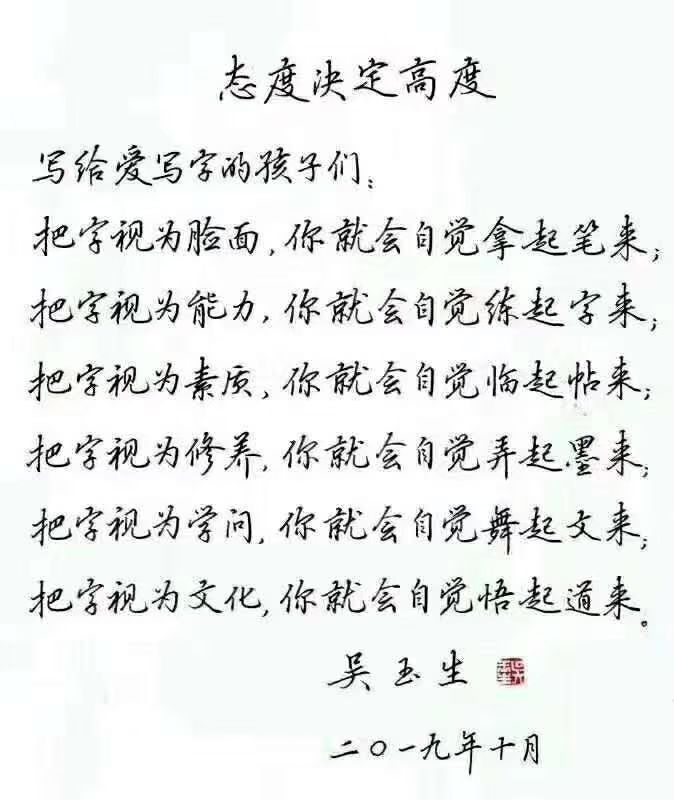 态度决定高度
写给爱写字的孩子们：
把字视为脸面，你就会自觉拿起笔来；
把字视为能力，你就会自觉练起字来；
把字视为素质，你就会自觉临起帖来；
把字视为修养，你就会自觉弄起墨来；
把字视为学问，你就会自觉舞起文来；
把字视为文化，你就会自觉悟起道来。
吴玉生
二〇一九年十月